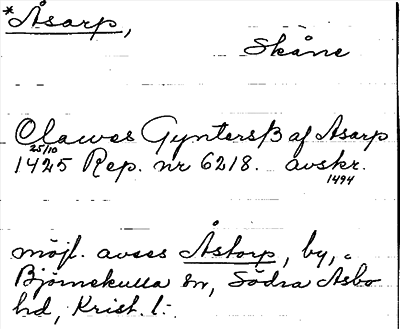 *Åsarp,
Skåne
Olawes Gyntersß af Asarp
25/10
1425 Rep. nr 6218. avskr.
1494
möjl. avses Åstorp, by,
Björnekulla sn, Södra Åsbo
hd, Krist. l: